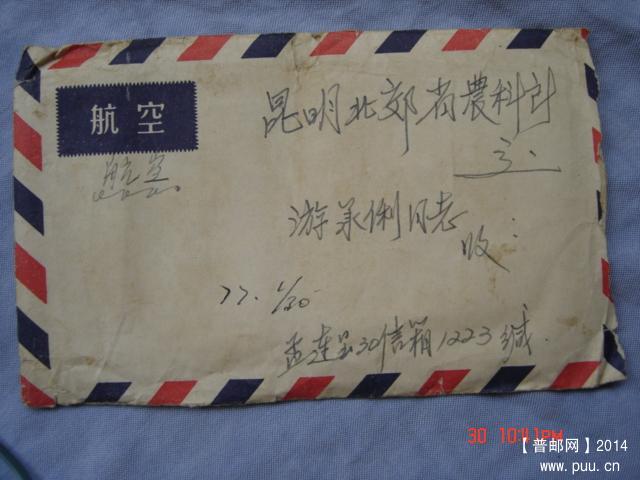 航空
航空
昆明北郊省農科所
游承俐同志
收:
77. 1/30
孟连县30信箱1223缄.
30 10:41PM
【普邮网】2014
www.puu.cn